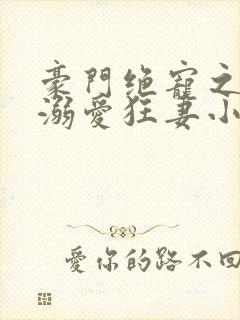 豪門绝寵之
溺愛狂妻小
愛你的路不回